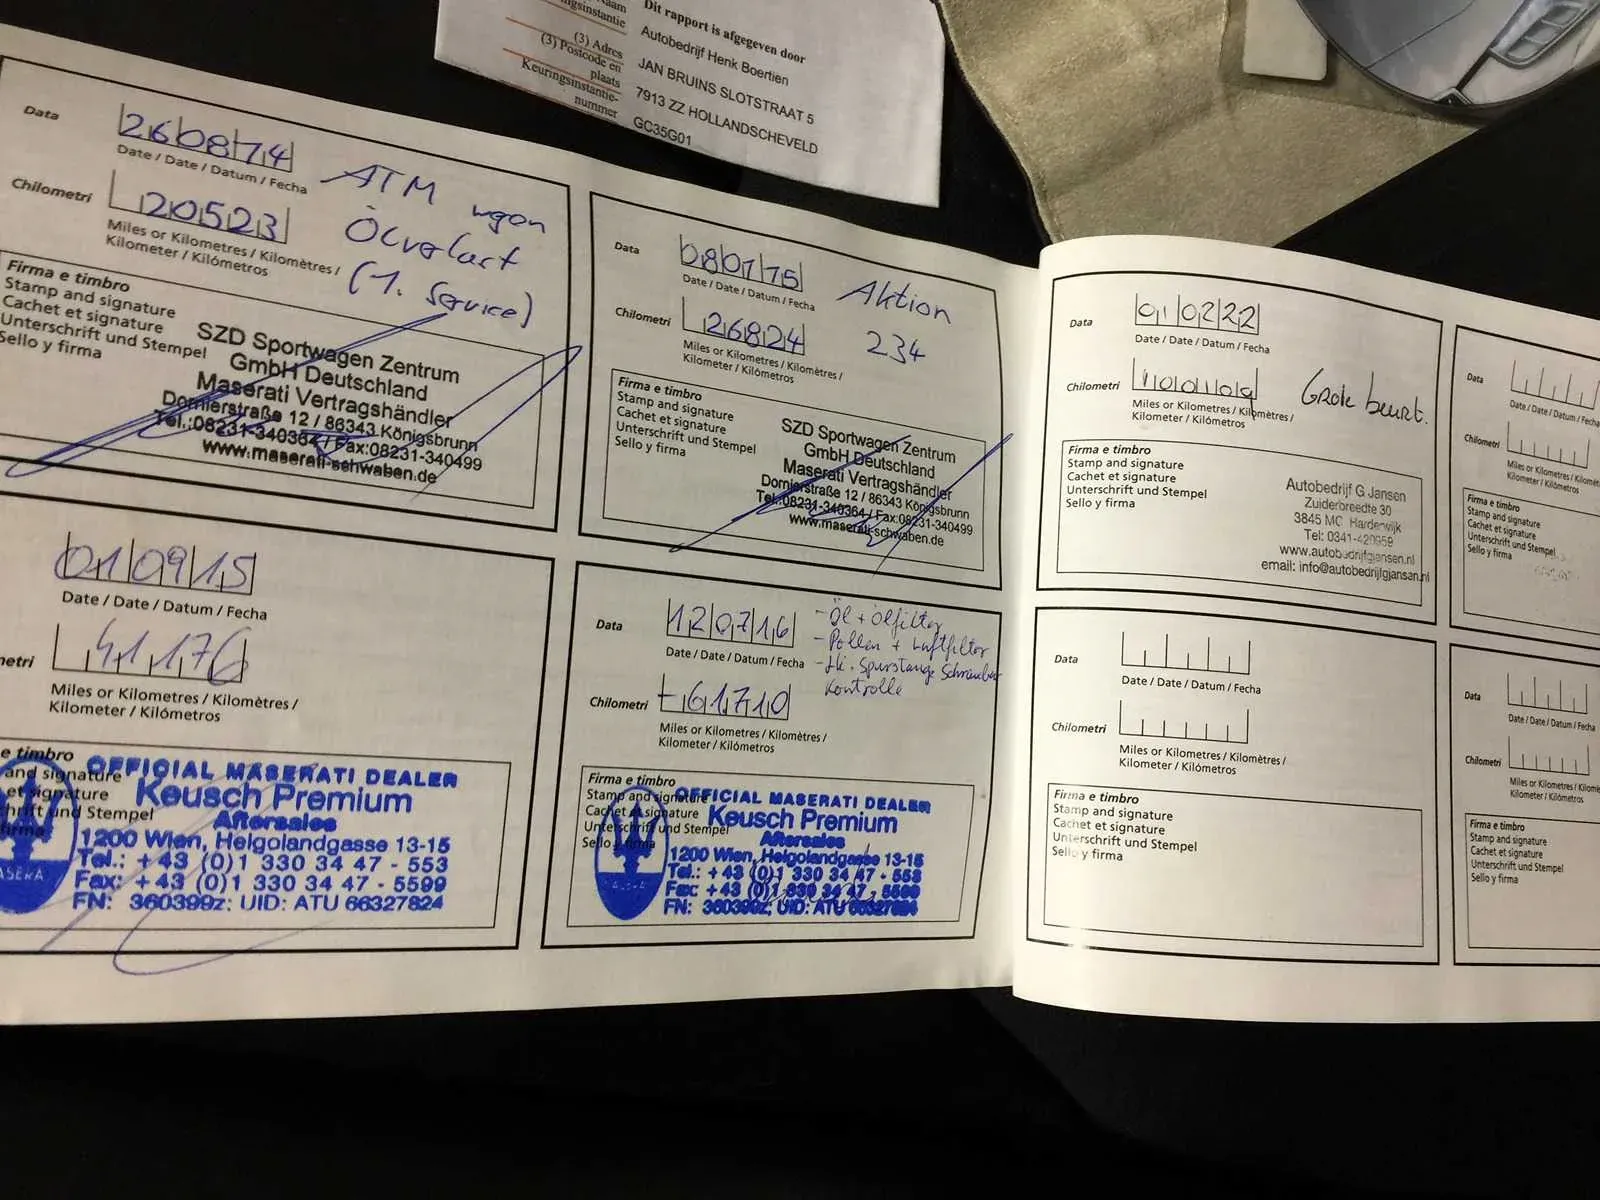 Dit rapport is afgegeven door
Autobedrijf Henk Boertien
(3) Adres
JAN BRUINS SLOTSTRAAT 5
(3) Postcode en
plaats
7913 ZZ HOLLANDSCHEVELD
Keuringsinstantie-
nummer
GC35G01
Data
260814
Date / Date / Datum / Fecha
Chilometri
20523
Miles or Kilometres / Kilomètres /
Kilometer / Kilómetros
ATM wgen
Ölverlust
(1. Service)
Firma e timbro
Stamp and signature
Cachet et signature
Unterschrift und Stempel
Sello y firma
SZD Sportwagen Zentrum
GmbH Deutschland
Maserati Vertragshändler
Dornierstraße 12 / 86343 Königsbrunn
Tel.:08231-340364 / Fax:08231-340499
www.maserati-schwaben.de
Data
080115
Date / Date / Datum / Fecha
Chilometri
26824
Miles or Kilometres / Kilomètres /
Kilometer / Kilómetros
Aktion
234
Firma e timbro
Stamp and signature
Cachet et signature
Unterschrift und Stempel
Sello y firma
SZD Sportwagen Zentrum
GmbH Deutschland
Maserati Vertragshändler
Dornierstraße 12 / 86343 Königsbrunn
Tel.:08231-340364 / Fax:08231-340499
www.maserati-schwaben.de
010915
Date / Date / Datum / Fecha
metri
41176
Miles or Kilometres / Kilomètres /
Kilometer / Kilómetros
e timbro
and signature
et signature
hrift und Stempel
firma
OFFICIAL MASERATI DEALER
Keusch Premium
Aftersales
1200 Wien, Helgolandgasse 13-15
Tel.: +43 (0)1 330 34 47 - 553
Fax: +43 (0)1 330 34 47 - 5599
FN: 360399z; UID: ATU 66327824
Data
120716
Date / Date / Datum / Fecha
Chilometri
61710
Miles or Kilometres / Kilomètres /
Kilometer / Kilómetros
- Öl + Ölfilter
- Pollen + Luftfilter
- Li. Spurstange Schrauben
Kontrolle
Firma e timbro
Stamp and signature
Cachet et signature
Unterschrift und Stempel
Sello y firma
OFFICIAL MASERATI DEALER
Keusch Premium
Aftersales
1200 Wien, Helgolandgasse 13-15
Tel.: +43 (0)1 330 34 47 - 553
Fax: +43 (0)1 330 34 47 - 5599
FN: 360399z; UID: ATU 66327824
Data
010222
Date / Date / Datum / Fecha
Chilometri
Miles or Kilometres / Kilomètres /
Kilometer / Kilómetros
Grote beurt.
Firma e timbro
Stamp and signature
Cachet et signature
Unterschrift und Stempel
Sello y firma
Autobedrijf G Jansen
Zuiderbreedte 30
3845 MC Harderwijk
Tel: 0341-420959
www.autobedrijfgjansen.nl
email: info@autobedrijfgjansen.nl
Data
Date / Date / Datum / Fecha
Chilometri
Miles or Kilometres / Kilomètres /
Kilometer / Kilómetros
Firma e timbro
Stamp and signature
Cachet et signature
Unterschrift und Stempel
Sello y firma
Data
Date / Date / Datum / Fecha
Chilometri
Miles or Kilometres / Kilomè
Kilometer / Kilómetros
Firma e timbro
Stamp and signature
Cachet et signature
Unterschrift und Stempel
Sello y firma
Data
Date / Date / Datum / Fecha
Chilometri
Miles or Kilometres / Kilomè
Kilometer / Kilómetros
Firma e timbro
Stamp and signature
Cachet et signature
Unterschrift und Stempel
Sello y firma